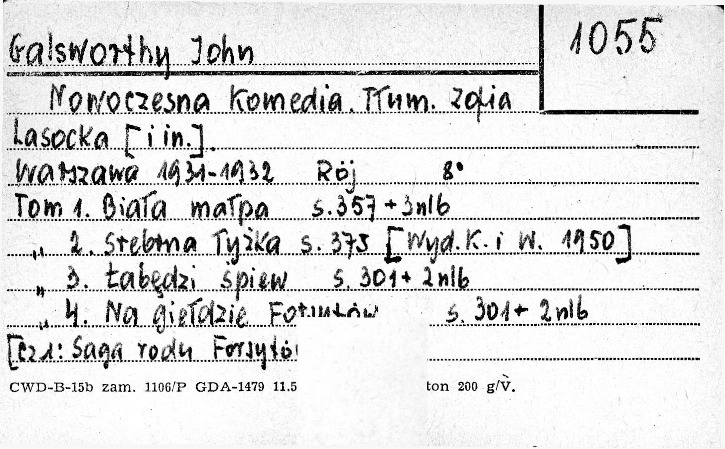 Galsworthy John
1055
Nowoczesna Komedia. Tłum. Zofia
Lasocka [i in.].
Warszawa 1931-1932 Rój 8°
Tom 1. Biała małpa s. 357 + 3 nlb
„ 2. Srebrna łyżka s. 375 [Wyd. K. i W. 1950]
„ 3. Łabędzi śpiew s. 301 + 2 nlb
„ 4. Na giełdzie Forsytów s. 301 + 2 nlb
[cz 1: Saga rodu Forsytó
CWD-B-15b zam. 1106/P GDA-1479 11.5 ton 200 g/V.